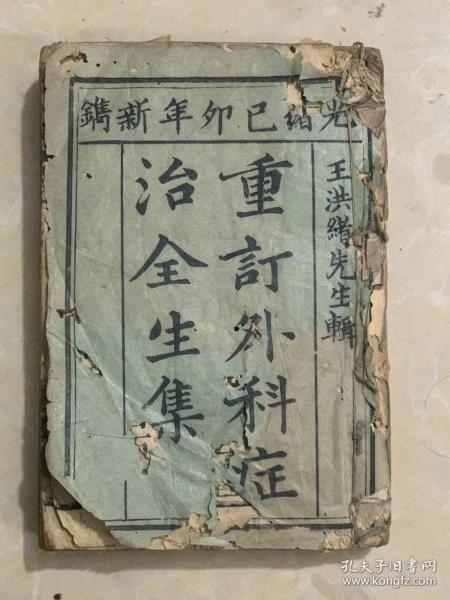 光緒己卯年新鐫
王洪緒先生輯
重訂外科症
治全生集
孔夫子旧书网
www.kongfz.com